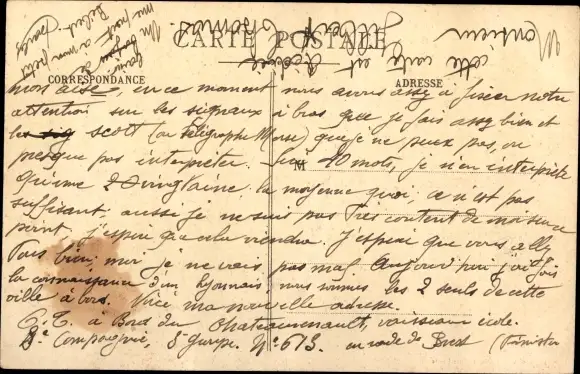 CARTE POSTALE
CORRESPONDANCE
ADRESSE
Monsieur Gilbert Thomas
cette carte est
mon aise, en ce moment nous avons assez à fixer notre
attention sur les signaux à bras que je fais assez bien et
les scott (ou télégraphe Morse) que je ne peux pas, ou
presque pas interpréter. Sur 40 mots, je n'en interprète
qu'une 20 vingtaine la moyenne quoi, ce n'est pas
suffisant, aussi je ne suis pas très content de ma science
point, j'espère que cela viendra. J'espère que vous allez
Tous bien, moi je ne vais pas mal. Aujourd'hui j'ai fait
la connaissance d'un lyonnais nous sommes les 2 seuls de cette
ville à bord. Voici ma nouvelle adresse.
C. T. à Bord du Chateaurenault, vaisseau école.
2e Compagnie, 5 Groupe. No 613. en rade de Brest (Finistère